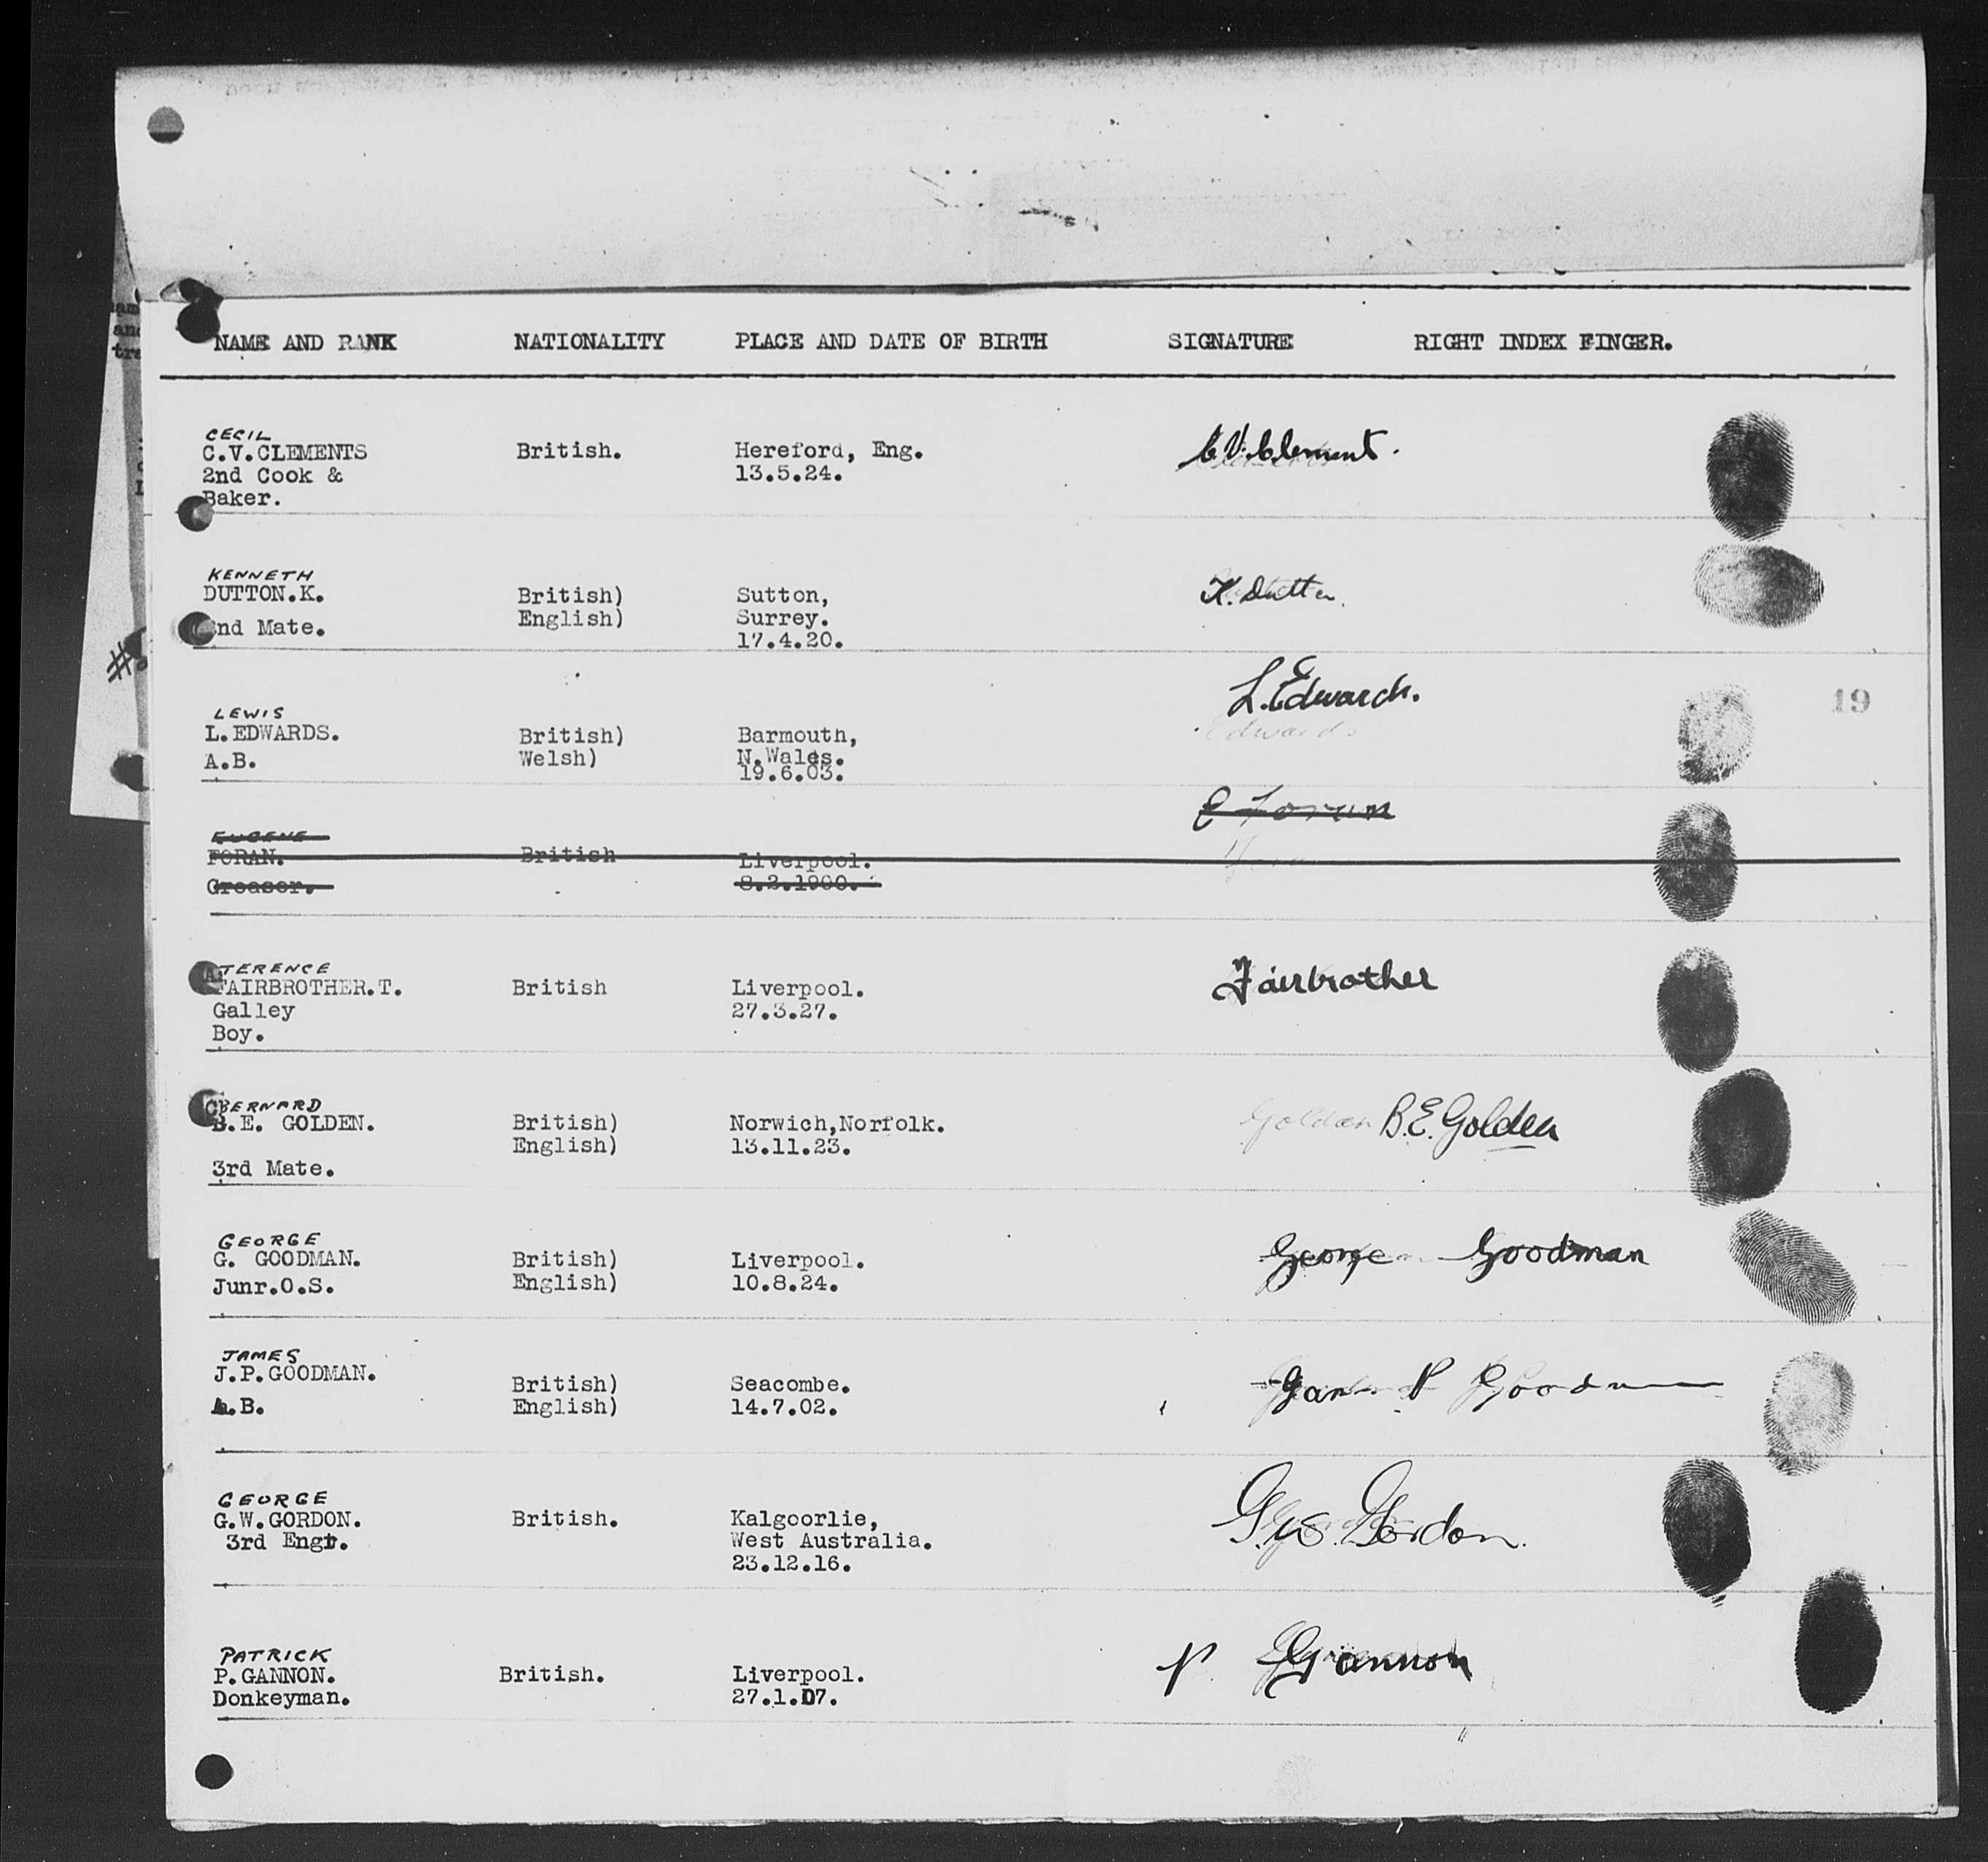 NAME AND RANK NATIONALITY PLACE AND DATE OF BIRTH SIGNATURE RIGHT INDEX FINGER.
CECIL
C.V.CLEMENTS British. Hereford, Eng. C.V.Clement.
2nd Cook & 13.5.24.
Baker.
KENNETH
DUTTON.K. British) Sutton, K. Dutton.
English) Surrey.
nd Mate.
17.4.20.
LEWIS L. Edwards.
L.EDWARDS. British) Barmouth, Edwards
A.B. Welsh) N.Wales.
19.6.03.
19
E Foran
EUGENE
FORAN. British Liverpool.
Greaser. 8.2.1900.
TERENCE
FAIRBROTHER.T. British Liverpool. Fairbrother
Galley 27.3.27.
Boy.
BERNARD
B.E. GOLDEN. British) Norwich,Norfolk. Golden B.E.Golden
English) 13.11.23.
3rd Mate.
GEORGE
G. GOODMAN. British) Liverpool. George Goodman
Junr.O.S. English) 10.8.24.
JAMES
J.P.GOODMAN. British) Seacombe. James P Goodman
A.B. English) 14.7.02.
GEORGE
G.W.GORDON. British. Kalgoorlie, G.W. Gordon.
3rd Engr. West Australia.
23.12.16.
PATRICK
P.GANNON. British. Liverpool. P. Gannon
Donkeyman. 27.1.07.